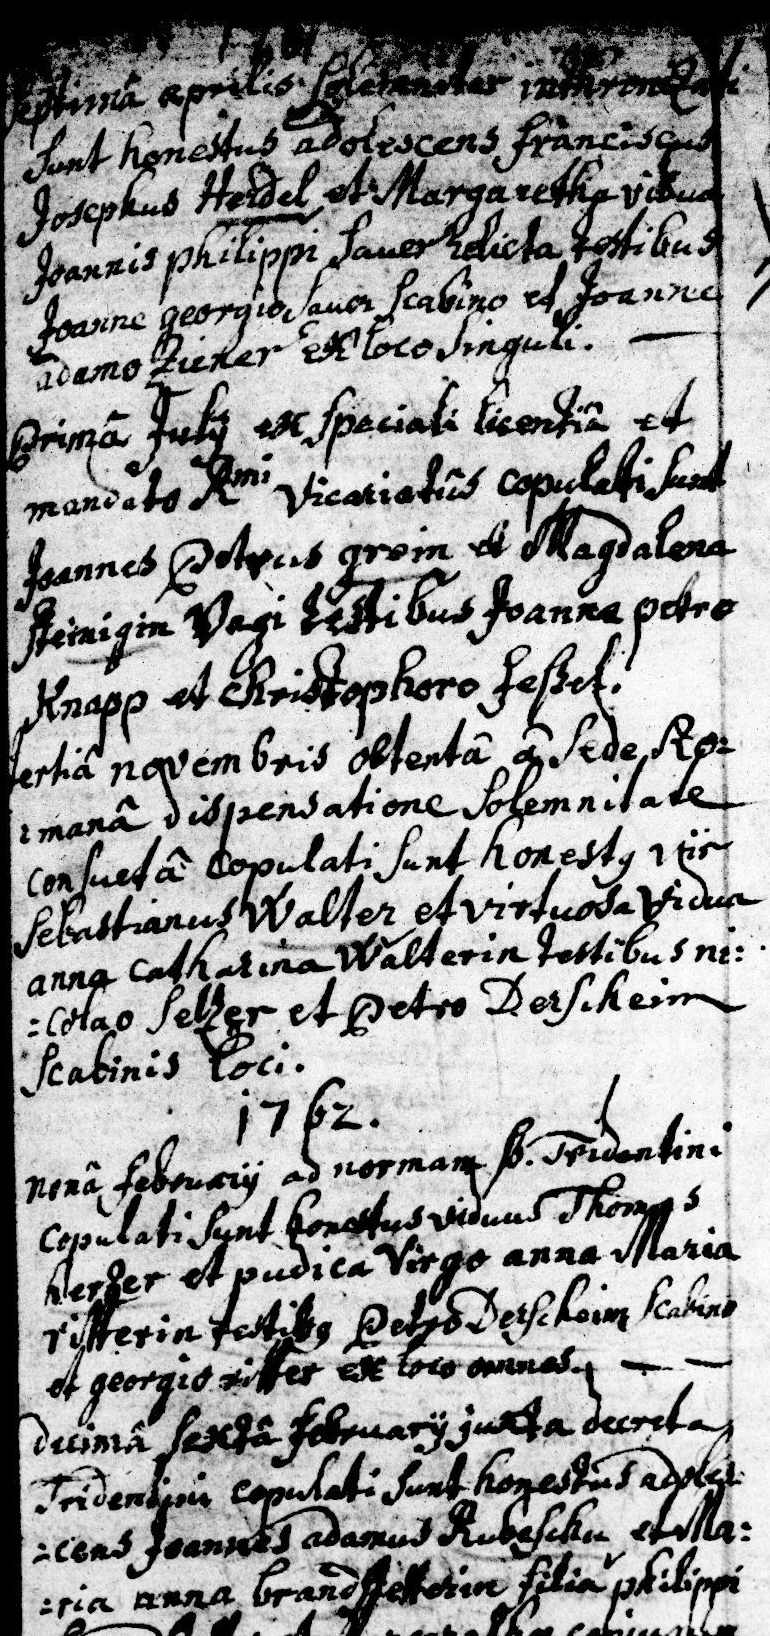 septimâ aprilis solemniter inthronizati
sunt honestus adolescens franciscus
Josephus Heidel et Margaretha vidua
Joannis philippi Sauer relicta testibus
Joanne georgio Sauer scabino et Joanne
adamo Ziener ex loco singuli.
primâ July ex speciali licentiâ et
mandato Rmi vicariatûs copulati sunt
Joannes Petrus grein et Magdalena
steinigin vagi testibus Joanne petro
Knapp et christophoro
tertiâ novembris obtentâ â sede Ro:
:manâ dispensatione solemnitate
consuetâ copulati sunt honestq vir
Sebastianus Walter et virtuosa vidua
anna catharina Walterin testibus ni:
:colao Selzer et Petro Derscheim
scabinis loci.
1762.
nonâ februarij ad normam ss. Tridentini
copulati sunt honestus viduus Thomas
herzer et pudica virgo anna Maria
ritterin testibq Petro Derscheim scabino
et georgio ritter ex loco omnes.
decimâ sextâ february juxta decreta
Tridentini copulati sunt honestus adoles:
:cens Joannes adamus et Ma:
:ria anna filia philippi